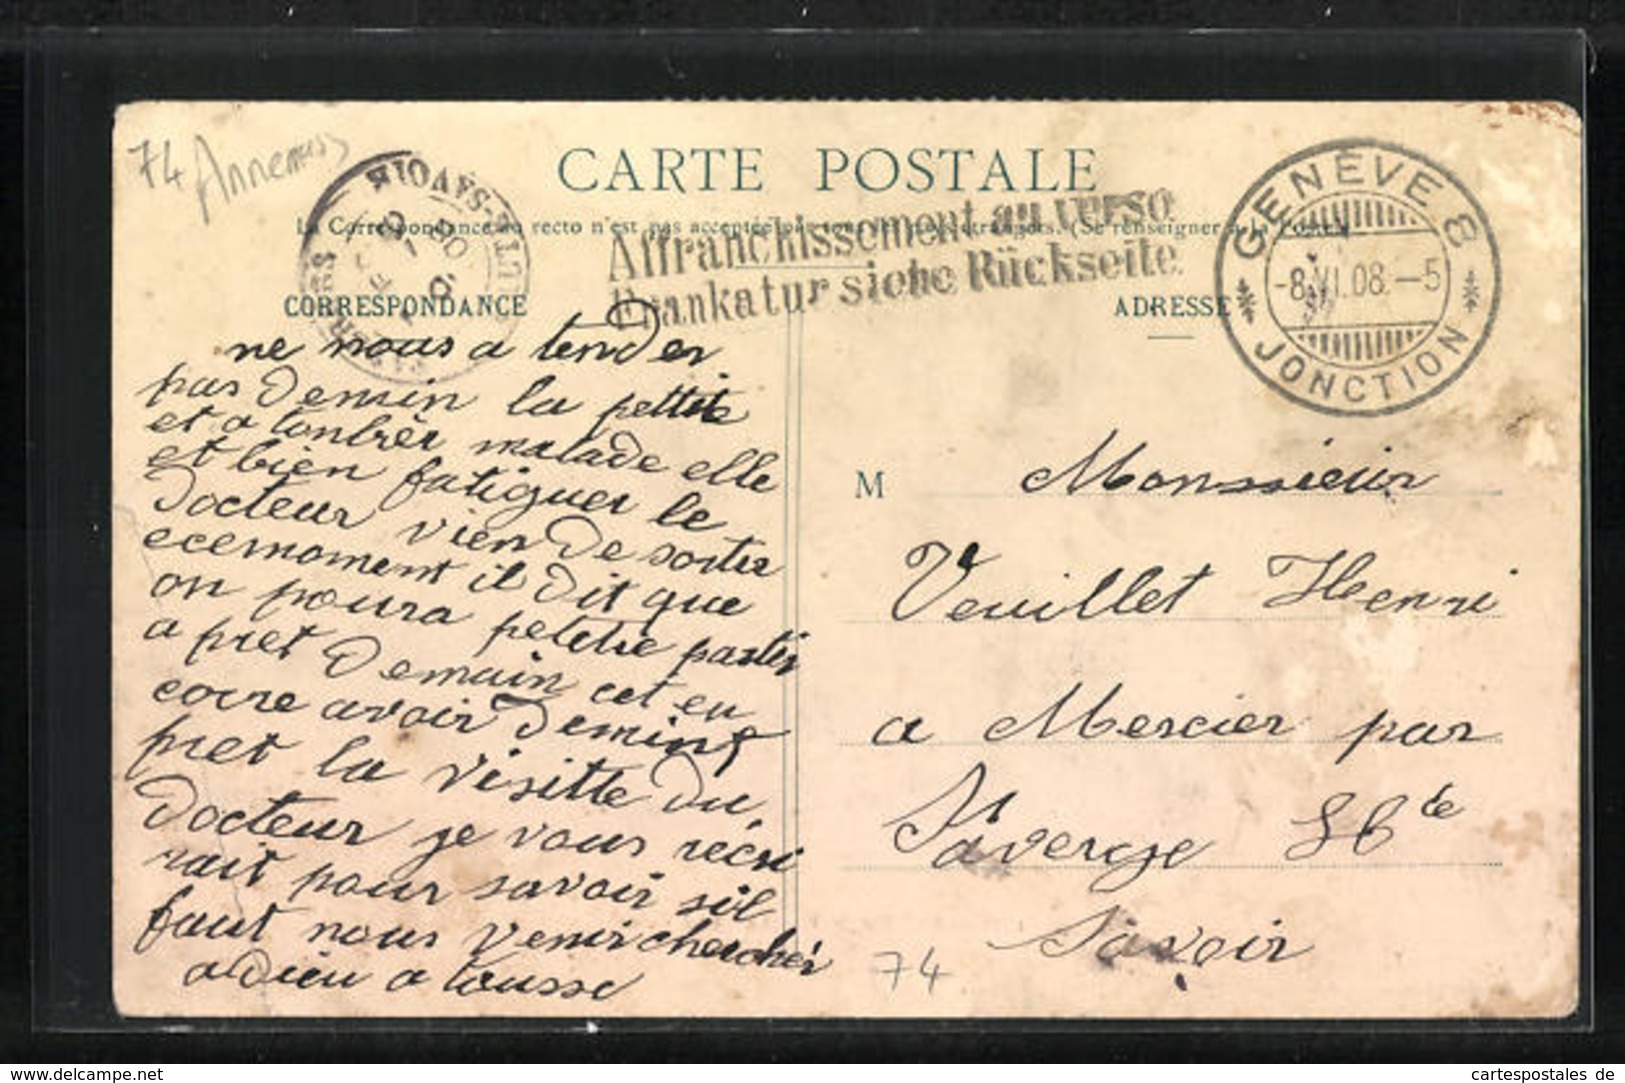 74 Annemass
CARTE POSTALE
La Correspondance au recto n'est pas acceptée par tous les pays étrangers. (Se renseigner à la Poste)
Affranchissement au verso
Frankatur siehe Rückseite
SAVOIR
GENÈVE 8
-8.VI.08.-5
JONCTION
CORRESPONDANCE
ne nous a tender
pas Demin la pettite
et a tonbrér malade elle
et bien fatiguer le
Docteur vien De sortie
ecemoment il Dit que
on poura petetre partir
a pret Demain cet en
corre avoir Demins
pret la visitte Du
Docteur je vous récri
rait pour savoir sil
faut nous venir cherchér
aDieu a tousse
ADRESSE
M Monssieur
Veuillet Henri
a Mercier par
Saverge Hte
Savoir
74
www.cartespostales.de
cartespostales de